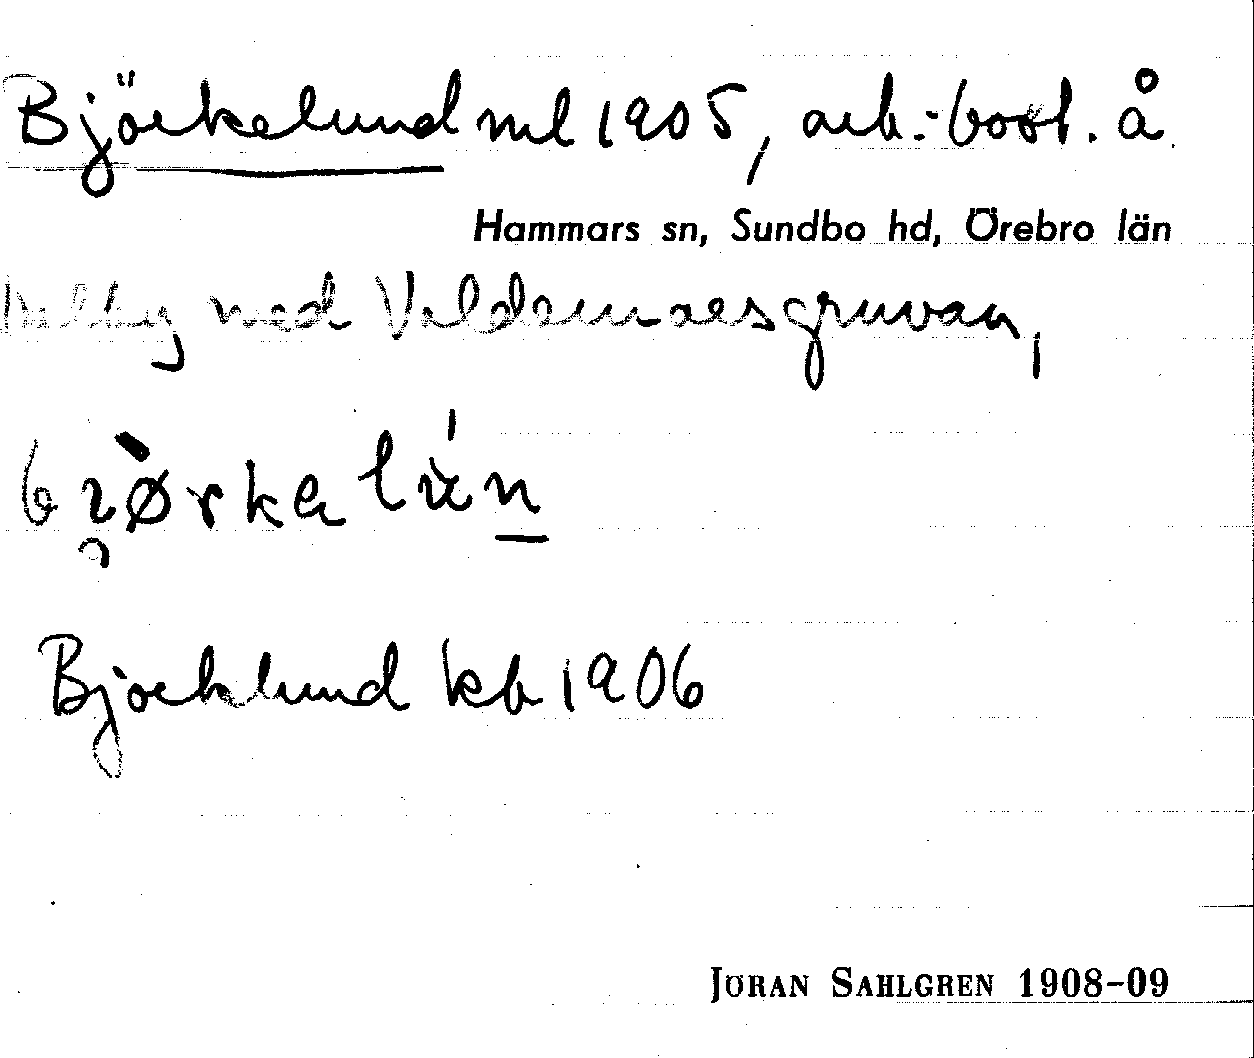 Björkelund ml 1905, arb.-bost. å
Hammars sn, Sundbo hd, Örebro län
med Valdemarsgruvan,
Björklund kb 1906
JÖRAN SAHLGREN 1908-09